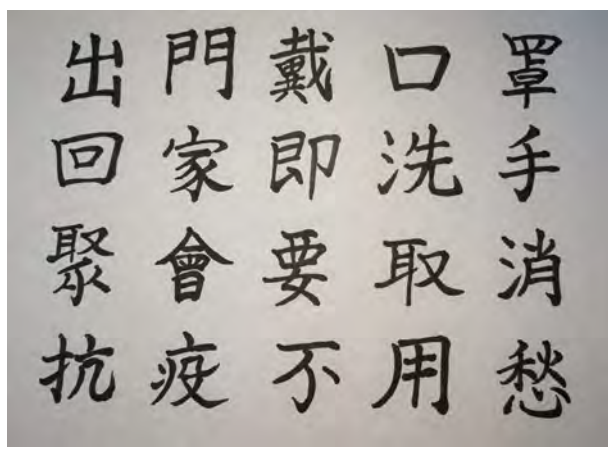 出門戴口罩
回家即洗手
聚會要取消
抗疫不用愁